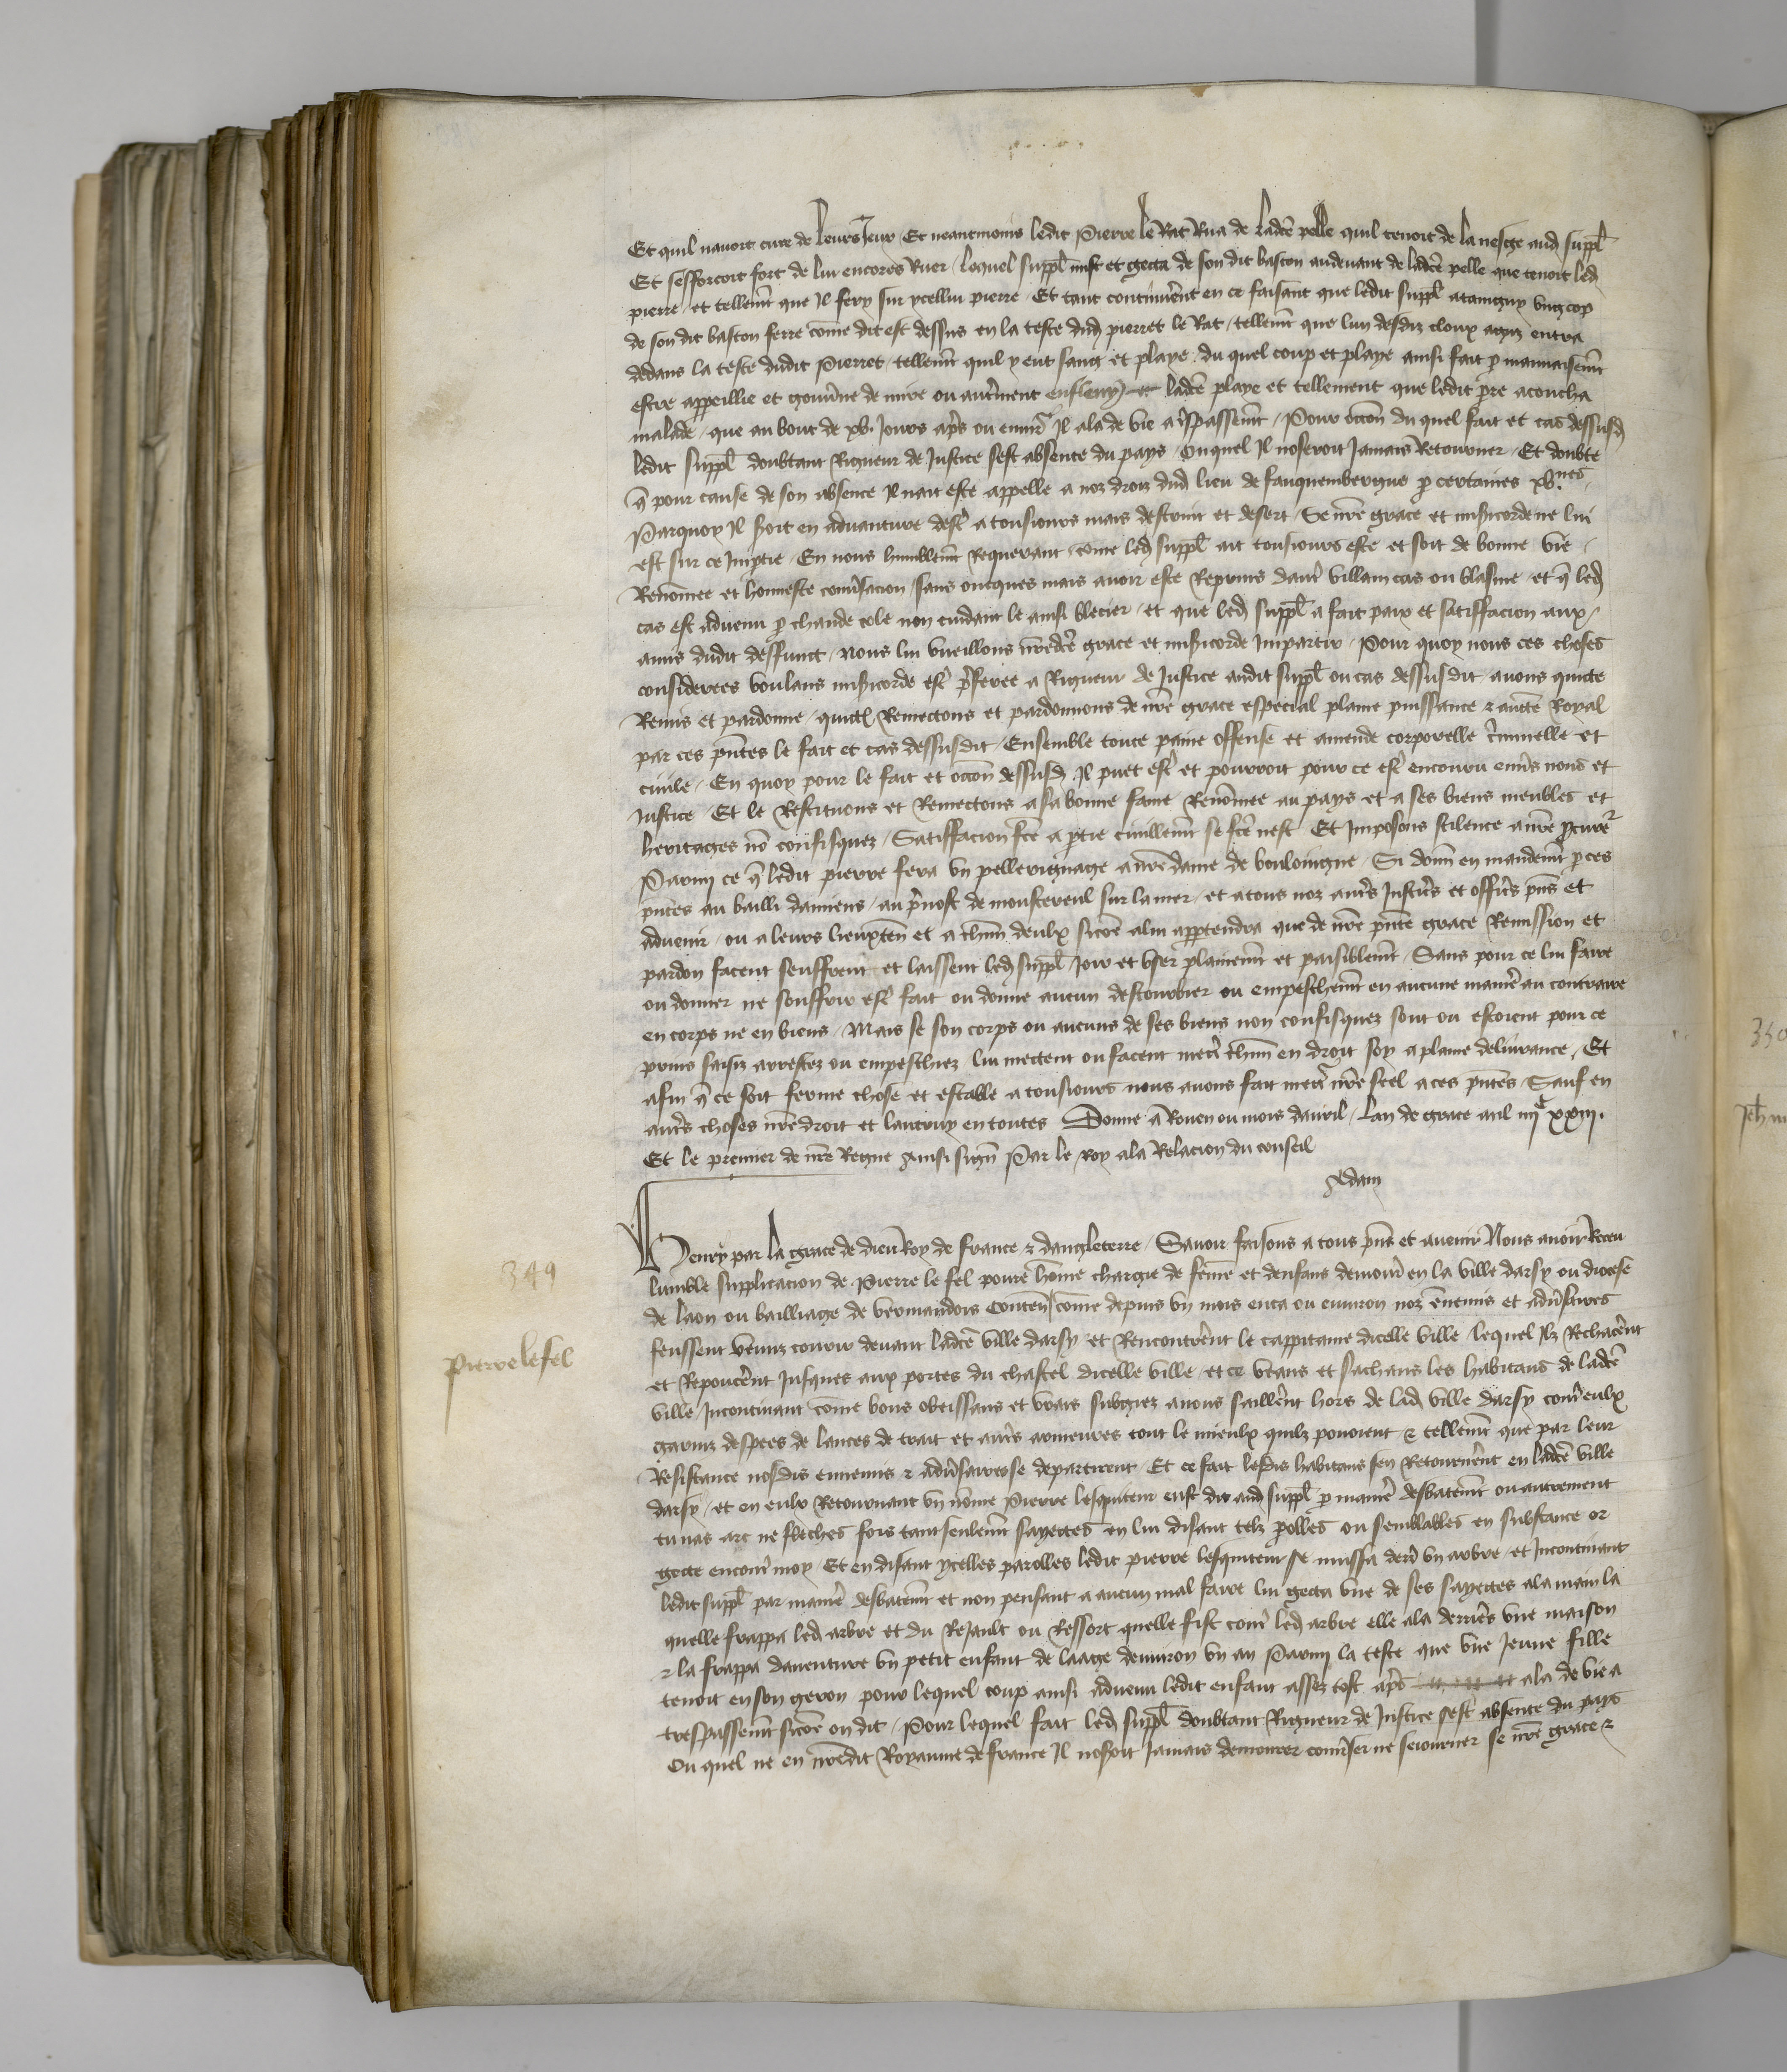 Et quil navoit cure de leurs Jeux Et neantmoins ledit Pierre le Rat Rua de ladce pelle quil tenoit de la nesge aud suppl
Et sefforcoit fort de lui encores Ruer lequel suppl mist et gecta de son dit baston audevant de ladce pelle que tenoit led
pierre et tellemt que Il fery sur ycellui pierre Et tant continuerent en ce faisant que ledit suppl ataingny ung cop
de son dit baston ferre come dit est dessus en la teste dud pierret le Rat tellemt que lun desdiz cloux aguz entra
dedans la teste dudit Pierret tellemt quil y eut sang et playe du quel coup et playe ainsi fait p mauvaisemt
estre appeillie et gouverne de mire ou autrement ladce playe et tellement que ledit pre acoucha
malade que au bout de xv Jours apres ou environ Il ala de vie a trespassemt Pour occon du quel fait et cas dessusd
ledit suppl doubtant Rigueur de Justice sest absente du pays Ouquel Il noseroit Jamais Retourner Et doubte
q pour cause de son absence Il nait este appelle a noz droiz dud lieu de fauquembergue p certaines xv.nes
Parquoy Il soit en adventure destre a tousiours mais destruit et desert Se nre grace et misicorde ne lui
est sur ce Imptie En nous humblemt Requerant come led suppl ait tousiours este et soit de bonne vie
Renomee et honneste conversacion sans oncques mais avoir este Reprins daut villain cas ou blasme et q led
cas est advenu p chaude cole non cuidant le ainsi blecier et que led suppl a fait paix et satiffacion aux
amis dudit deffunct Nous lui vueillons nredce grace et misicorde Impartir Pour quoy nous ces choses
considerees voulans misicorde estre preferee a Rigueur de Justice audit suppl ou cas dessusdit avons quicte
Remis et pardonne quictons Remectons et pardonnons de nre grace especial plaine puissance & aucte Royal
par ces pntes le fait et cas dessusdit Ensemble toute paine offense et amende corporelle criminelle et
civile En quoy pour le fait et occon dessusd Il puet estre et pourroit pour ce estre encouru envers nous et
Justice Et le Restituons et Remectons a sa bonne fame Renomee au pays et a ses biens meubles et
heritages no confisquez Satiffacion fce a ptie civillemt se fce nest Et Imposons silence a nre pcureur
Parmy ce q ledit pierre fera un pellerignage a nre dame de bouloingne Si donn en mandemt p ces
pntes au bailli damiens au prevost de monstereul sur la mer et a tous noz autres Justiciers et officiers pns et
advenir ou a leurs lieuxten et a chun deulx sicome a lui apptendra que de nre pnte grace Remission et
pardon facent seuffrent et laissent led suppl Joir et user plainemt et paisiblemt Sans pour ce lui faire
ou donner ne souffrir estre fait ou donne aucun destourbier ou empeschemt en aucune maniere au contraire
en corps ne en biens Mais se son corps ou aucuns de ses biens non confisquez sont ou estoient pour ce
prins saisiz arrestez ou empeschiez lui mectent ou facent mectre chun en droit soy a plaine delivrance Et
afin q ce soit ferme chose et estable a tousiours nous avons fait mectre nre scel a ces pntes Sauf en
autres choses nre droit et lautruy en toutes Donne a Rouen ou mois davril Lan de grace mil iiiic xxiii.
Et le premier de nre Regne Ainsi signe Par le Roy a la Relacion du conseil
Adam
Henry par la grace de dieu Roy de france & dangleterre Savoir faisons a tous pns et avenir Nous avoir Receu
lumble supplicacion de Pierre le fel poure home chargie de feme et denfans demour en la ville darsy ou diocese
de laon ou bailliage de vermandois Conten come depuis un mois enca ou environ noz ennemis et adversaires
feussent venuz courir devant ladce ville darsy et Rencontrerent le cappitaine dicelle ville lequel Ilz Rechacerent
et Repoucerent Jusques aux portes du chastel dicelle ville et ce veans et sachans les habitans de ladce
ville Incontinant come bons obeissans et vrais subgiez a nous saillirent hors de lad ville darsy contre eulx
garniz despees de lances de trait et autres armeures tout le mieulx quilz povoient & tellemt que par leur
Resistance nosdis ennemis & adversaires se departirent Et ce fait lesdis habitans sen Retournerent en ladce ville
darsy et en eulx Retournant un nome Pierre lesquiteur eust dit aud suppl p maniere desbatemt ou autrement
tu nas arc ne fleches fors tant seulemt sayectes en lui disant telz polles ou semblables en substance or
gecte encontre moy Et en disant ycelles parolles ledit pierre lesquiteur se mussa derriere un arbre et Incontinant
ledit suppl par maniere desbatemt et non pensant a aucun mal faire lui gecta une de ses sayectes a la main la
quelle frappa led arbre et du Rejault ou Ressort quelle fist contre led arbre elle ala derriere une maison
& la frappa daventure un petit enfant de laage denviron un an Parmy la teste que une Jeune fille
tenoit en son geron pour lequel coup ainsi advenu ledit enfant assez tost apres ala de vie a
trespassemt sicome on dit Pour lequel fait led suppl doubtant Rigueur de Justice sest absente du pays
Ou quel ne en nredit Royaume de france Il noseroit Jamais demourer converser ne seiourner se nre grace &
349
Pierre le fel
350
Jeh